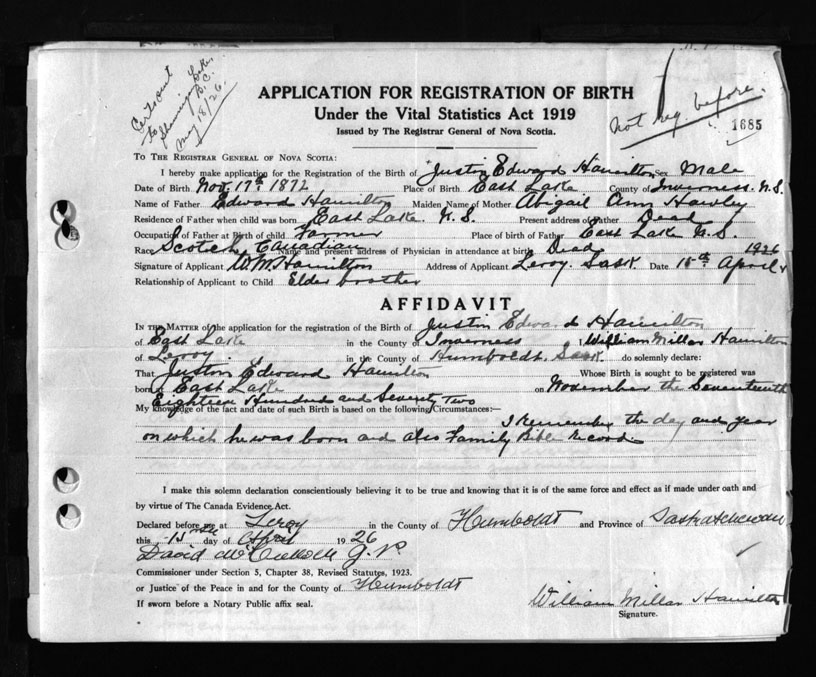 Cert sent
to Shawnigan Lake
B.C.
May 18/26.
APPLICATION FOR REGISTRATION OF BIRTH
Under the Vital Statistics Act 1919
Issued by The Registrar General of Nova Scotia.
Not reg. before.
1685
TO THE REGISTRAR GENERAL OF NOVA SCOTIA:
I hereby make application for the Registration of the Birth of Justin Edward Hamilton Sex Male
Date of Birth Nov. 17th 1872 Place of Birth East Lake County of Inverness. N.S.
Name of Father Edward Hamilton Maiden Name of Mother Abigail Ann Hawley
Residence of Father when child was born East Lake. N.S. Present address of Father Dead
Occupation of Father at Birth of child Farmer Place of birth of Father East Lake N.S.
Race Scotch Canadian Name and present address of Physician in attendance at birth Dead
Signature of Applicant W.M. Hamilton Address of Applicant Leroy. Sask. Date 15th April 1926
Relationship of Applicant to Child Elder brother
AFFIDAVIT
IN THE MATTER of the application for the registration of the Birth of Justin Edward Hamilton
of East Lake in the County of Inverness I William Millar Hamilton
of Leroy. in the County of Humboldt Sask. do solemnly declare:
That Justin Edward Hamilton Whose Birth is sought to be registered was
born at East Lake on November the Seventeenth
Eighteen Hundred and Seventy Two
My knowledge of the fact and date of such Birth is based on the following Circumstances:—
I Remember the day and year
on which he was born and also Family Bible Record.
I make this solemn declaration conscientiously believing it to be true and knowing that it is of the same force and effect as if made under oath and
by virtue of The Canada Evidence Act.
Declared before me at Leroy in the County of Humboldt and Province of Saskatchewan
this 15 day of April 1926
David J.P.
Commissioner under Section 5, Chapter 38, Revised Statutes, 1923.
or Justice of the Peace in and for the County of Humboldt
If sworn before a Notary Public affix seal.
William Millar Hamilton
Signature.